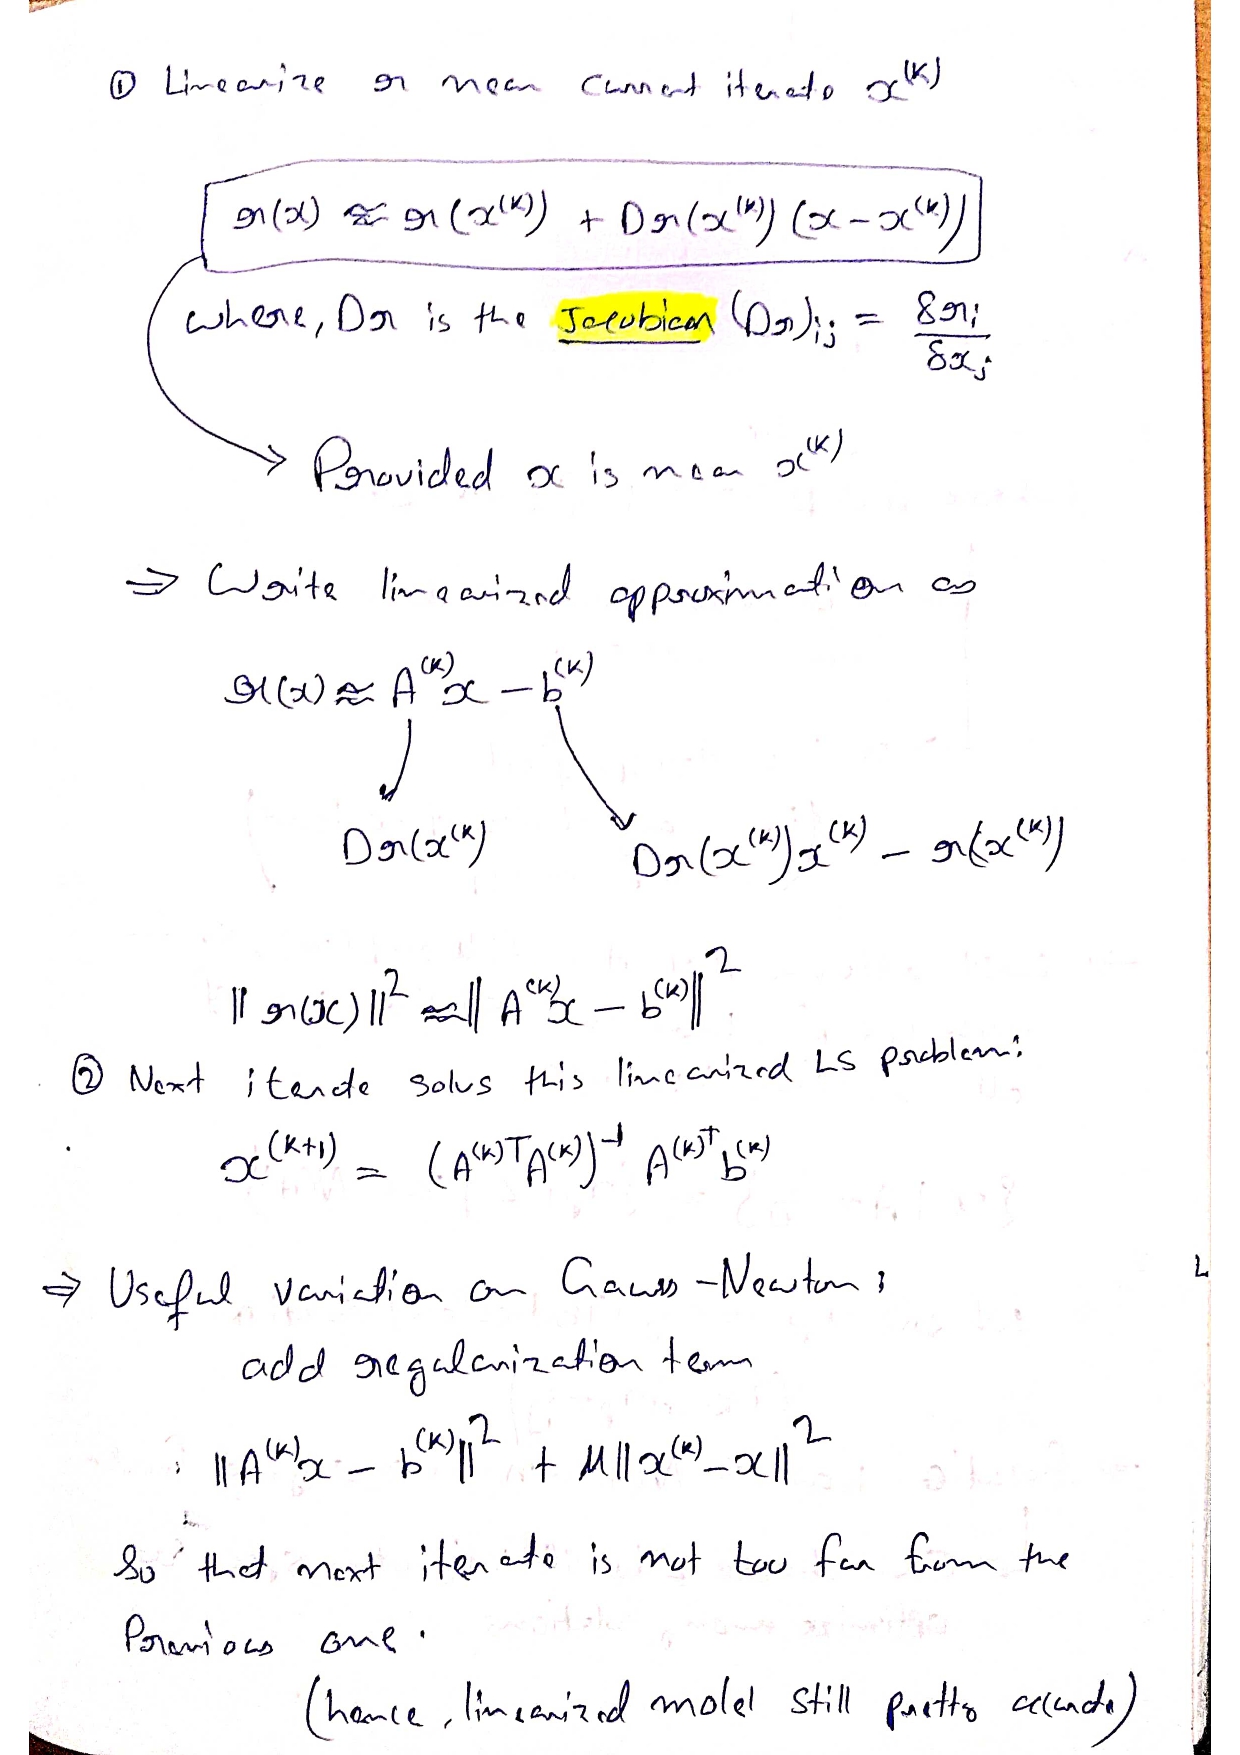 ① Linearize r near current iterate x^(k)
r(x) ≈ r(x^(k)) + Dr(x^(k)) (x - x^(k))
where, Dr is the Jacobian (Dr)ij = δri / δxj
→ Provided x is near x^(k)
⇒ Write linearized approximation as
r(x) ≈ A^(k)x - b^(k)
Dr(x^(k)) Dr(x^(k))x^(k) - r(x^(k))
||r(x)||² ≈ ||A^(k)x - b^(k)||²
② Next iterate solves this linearized LS problem:
x^(k+1) = (A^(k)T A^(k))^-1 A^(k)T b^(k)
⇒ Useful variation on Gauss-Newton:
add regularization term
||A^(k)x - b^(k)||² + μ||x^(k) - x||²
So that next iterate is not too far from the
Previous one.
(hence, linearized model still pretty accurate)